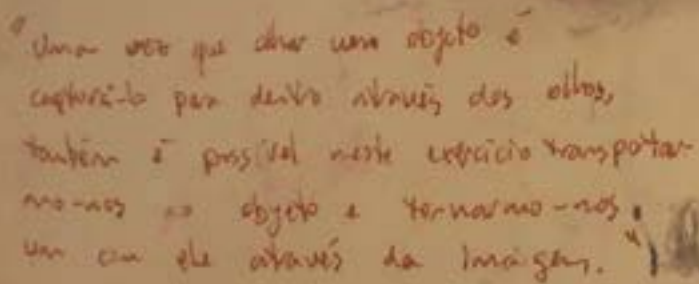 "Uma vez que olhar um objeto é
capturá-lo para dentro através dos olhos,
também é possível neste exercício transportar-
mo-nos ao objeto e tornarmo-nos
um com ele através da imagem."